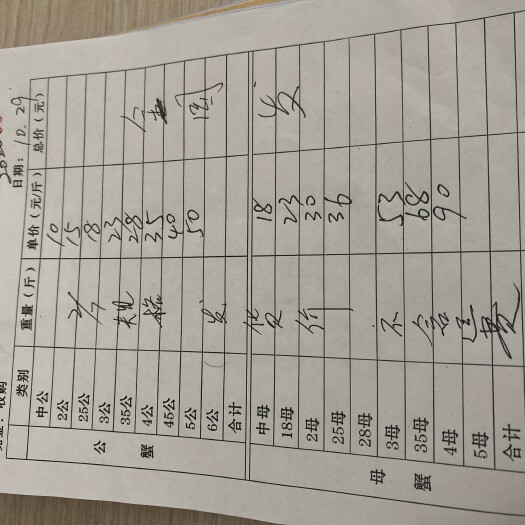 日期: 10.29
类别 重量(斤) 单价(元/斤) 总价(元)
公蟹
中公 10
2公 15
25公 18
3公 23
35公 规 28 全
4公 格 35
45公 40
5公 50 国
6公 发
合计
母蟹
中母 货 18 发
18母 23
2母 价 30
25母 36
28母
3母 不 53
35母 含 68
4母 运 90
5母 费
合计